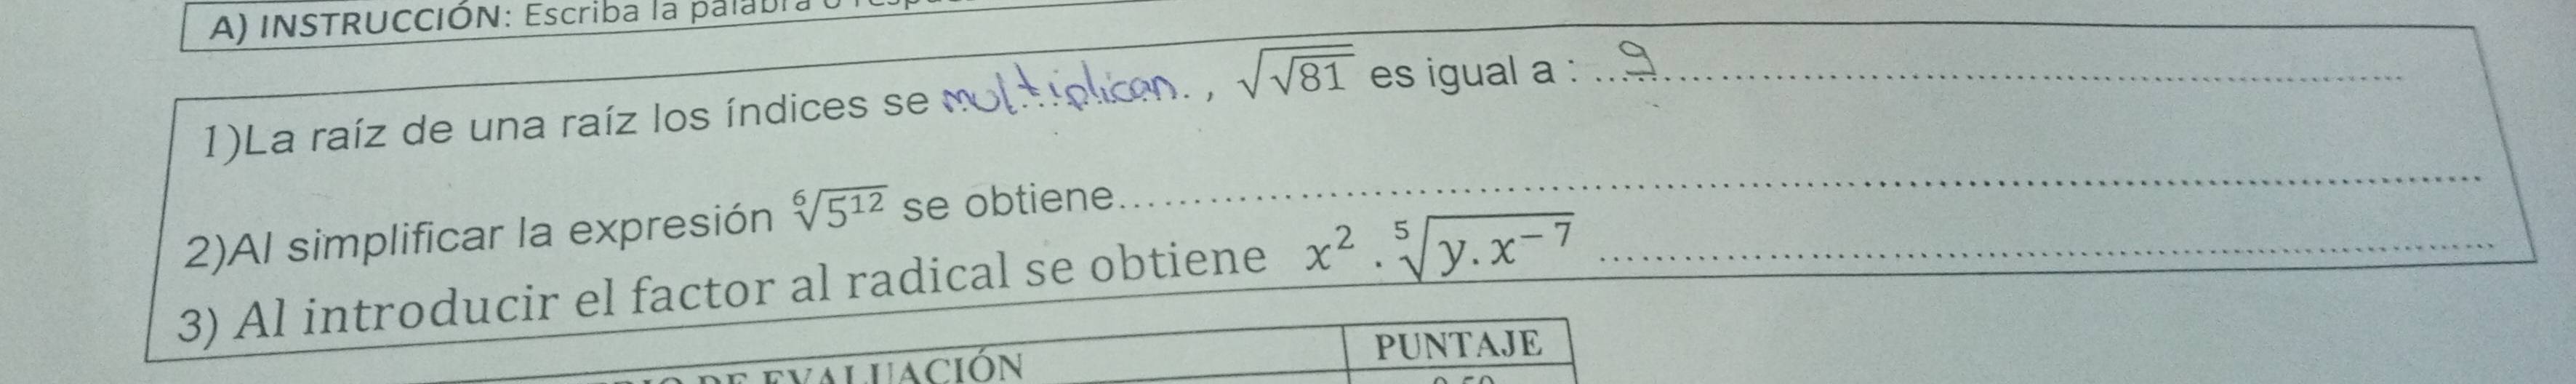 A) INSTRUCCIÓN: Escriba la palabra o
1)La raíz de una raíz los índices se multiplican. , √√81 es igual a : ....9....
2)Al simplificar la expresión ⁶√5¹² se obtiene....
3) Al introducir el factor al radical se obtiene x² . ⁵√y.x⁻⁷ ....
DE EVALUACIÓN PUNTAJE